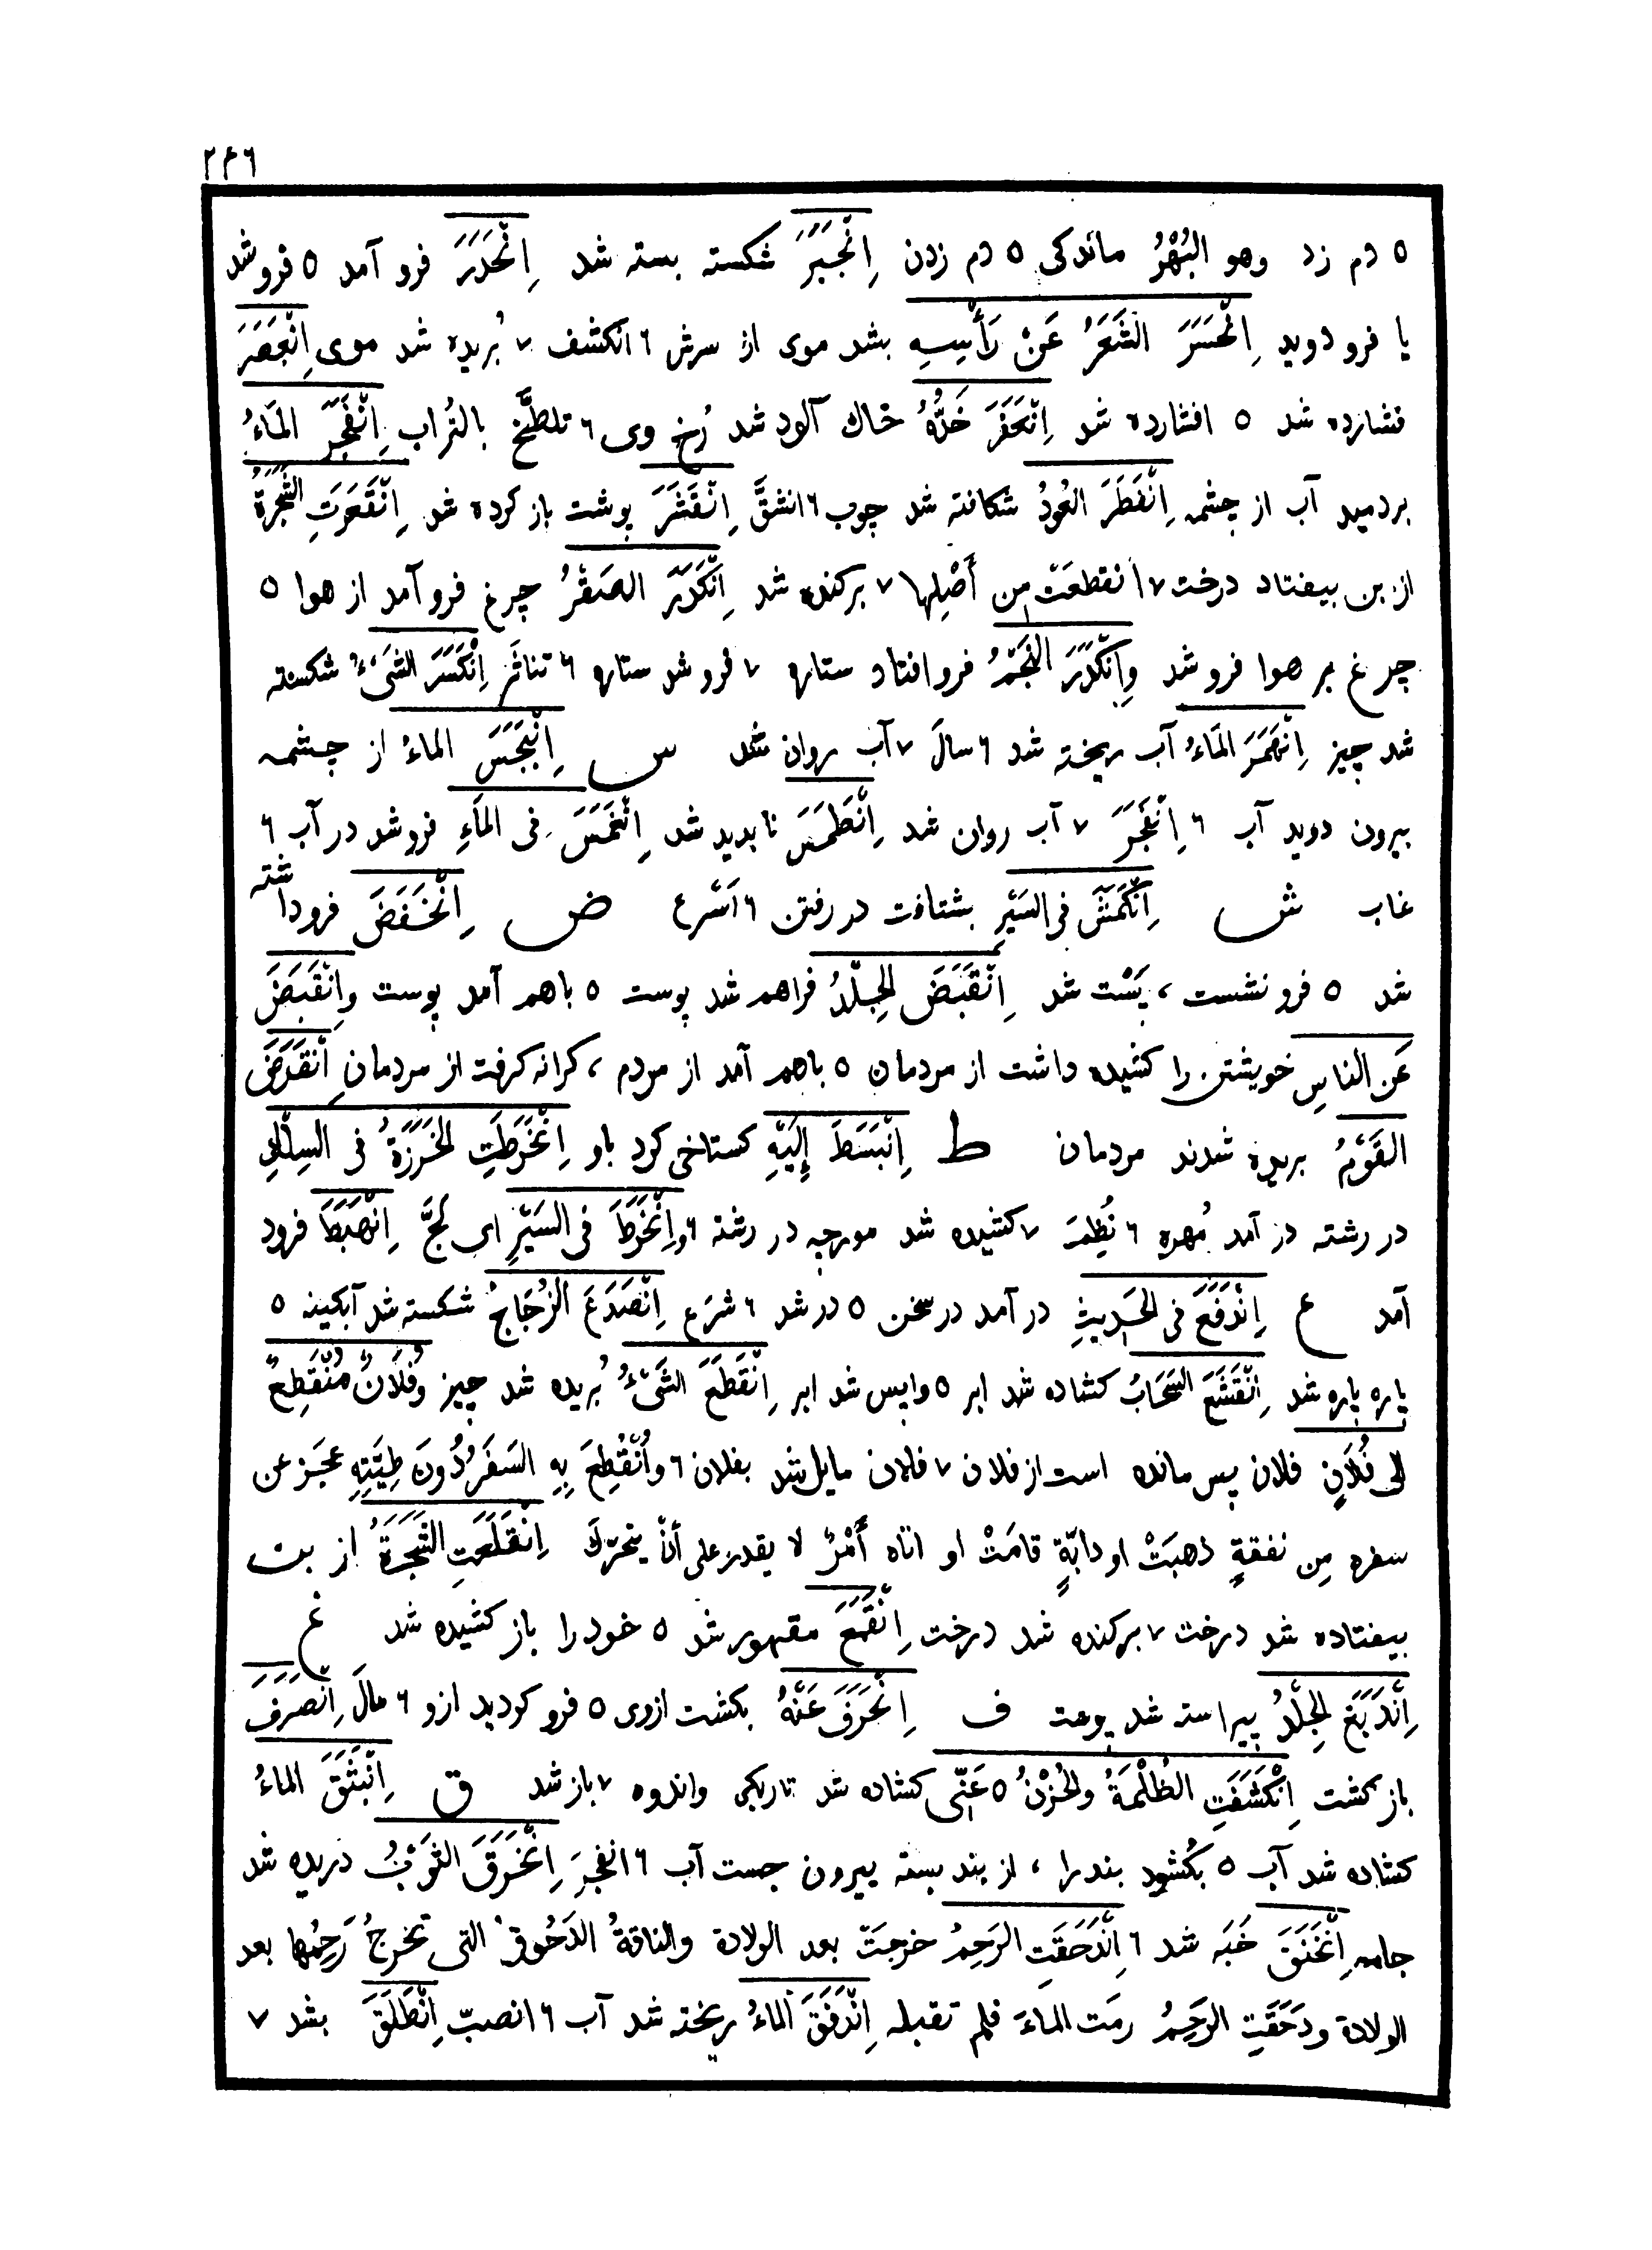 ۲۴۶
۵ دم زد وهو البُهْرُ ماندکی ۵ دم زدن اِنْجَبَرَ شکسته بسته شد اِنْحَدَرَ فرو آمد ۵ فرو شد
یا فرو دوید اِنْحَسَرَ الشَعَرُ عَنْ رَأْسِهِ بشد موی از سرش ۶ انکشف ۷ بُریده شد موی اِنْعَصَرَ
فشارده شد ۵ افشارده شد اِنْعَفَرَ خَدُّهُ خاک آلود شد رُخ وی ۶ تلطَّخ بالتُراب اِنْفَجَرَ المَاءُ
بردمید آب از چشمه اِنْفَطَرَ العُودُ شکافته شد چوب ۶ انشقَّ اِنْقَشَرَ پوشت باز کرده شد اِنْقَعَرَتِ الشَّجَرَةُ
از بن بیفتاد درخت ۷ انقطعَتْ مِن أَصْلِها ۷ برکنده شد اِنْکَدَرَ الصَقْرُ چرغ فرو آمد از هوا ۵
چرغ بر هوا فرو شد وَاِنْکَدَرَ النَجْمُ فرو افتاد ستاره ۷ فرو شد ستاره ۶ تناثَر اِنْکَسَرَ الشَیْءُ شکسته
شد چیز اِنْهَمَرَ المَاءُ آب ریخته شد ۶ سالَ ۷ آب روان شد س اِنْبَجَسَ الماءُ از چشمه
بیرون دوید آب ۶ اِنْفَجَرَ ۷ آب روان شد اِنْطَمَسَ ناپدید شد اِنْغَمَسَ فِی المَاءِ فرو شد در آب ۶
غاب ش اِنْکَمَشَ فی السَیْرِ بشتافت در رفتن ۶ اَسْرع ض اِنْخَفَضَ فرو داشته
شد ۵ فرو نشست ، پَسْت شد اِنْقَبَضَ الجِلْدُ فراهم شد پوست ۵ باهم آمد پوست واِنْقَبَضَ
عَن الناسِ خویشتن را کشیده داشت از مردمان ۵ باهم آمد از مردم ، کرانه کرفت از مردمان اِنْقَرَضَ
القَوْمُ بریده شدند مردمان ط اِنْبَسَطَ إِلَیْهِ کستاخی کرد باو اِنْخَرَطَتِ الخَرَزَةُ فی السِلْكِ
در رشته در آمد مُهره ۶ نُظِمَ ۷ کشیده شد مورچه در رشته ۶ واِنْخَرَطَ فی السَیْرِ ای لَجَّ اِنْهَبَطَ فرود
آمد ع اِنْدَفَعَ فی الحَدِیثِ در آمد در سخن ۵ در شد ۶ شرَع اِنْصَدَعَ الزُجَاجُ شکسته شد آبکینه ۵
پاره پاره شد اِنْقَشَعَ السَحَابُ کشاده شد ابر ۵ واپس شد ابر اِنْقَطَعَ الشَیْءُ بُریده شد چیز وفُلَانٌ مُنْقَطِعٌ
الی فُلَانٍ فلان پس مانده است از فلان ۷ فلان مایل شد بفلان ۶ واُنْقُطِعَ بِهِ السَفَرُ دُونَ طِیَّتِهِ عجَز عن
سفره مِن نفقةٍ ذهبَتْ او دابّةٍ قامَتْ او اتاه أَمْرٌ لا یقدر علی أنْ یتحرّك اِنْقَلَعَتِ الشَجَرَةُ از بن
بیفتاده شد درخت ۷ برکنده شد درخت اِنْقَمَعَ مقهور شد ۵ خود را باز کشیده شد غ
اِنْدَبَغَ الجِلْدُ پیراسته شد پوست ف اِنْحَرَفَ عَنْهُ بکشت ازوی ۵ فرو کردید ازو ۶ مالَ اِنْصَرَفَ
باز کشت اِنْکَشَفَتِ الظُلْمَةُ والحُزْنُ ۵ عَنّی کشاده شد تاریکی واندوه ۷ باز شد ق اِنْبَثَقَ الماءُ
کشاده شد آب ۵ بکُشود بند را ، از بند بسته بیرون جست آب ۶ انفجرَ اِنْخَرَقَ الثَوْبُ دریده شد
جامه اِنْخَنَقَ خَبَه شد ۶ اِنْدَحَقَتِ الرَحِمُ خرجَتْ بعد الولادة والناقةُ الدَحُوقُ التی تخرجُ رَحِمُها بعد
الولادة ودَحَقَتِ الرَحِمُ رمَت الماءَ فلم تقبله اِنْدَفَقَ الماءُ ریخته شد آب ۶ انصبّ اِنْطَلَقَ بشد ۷